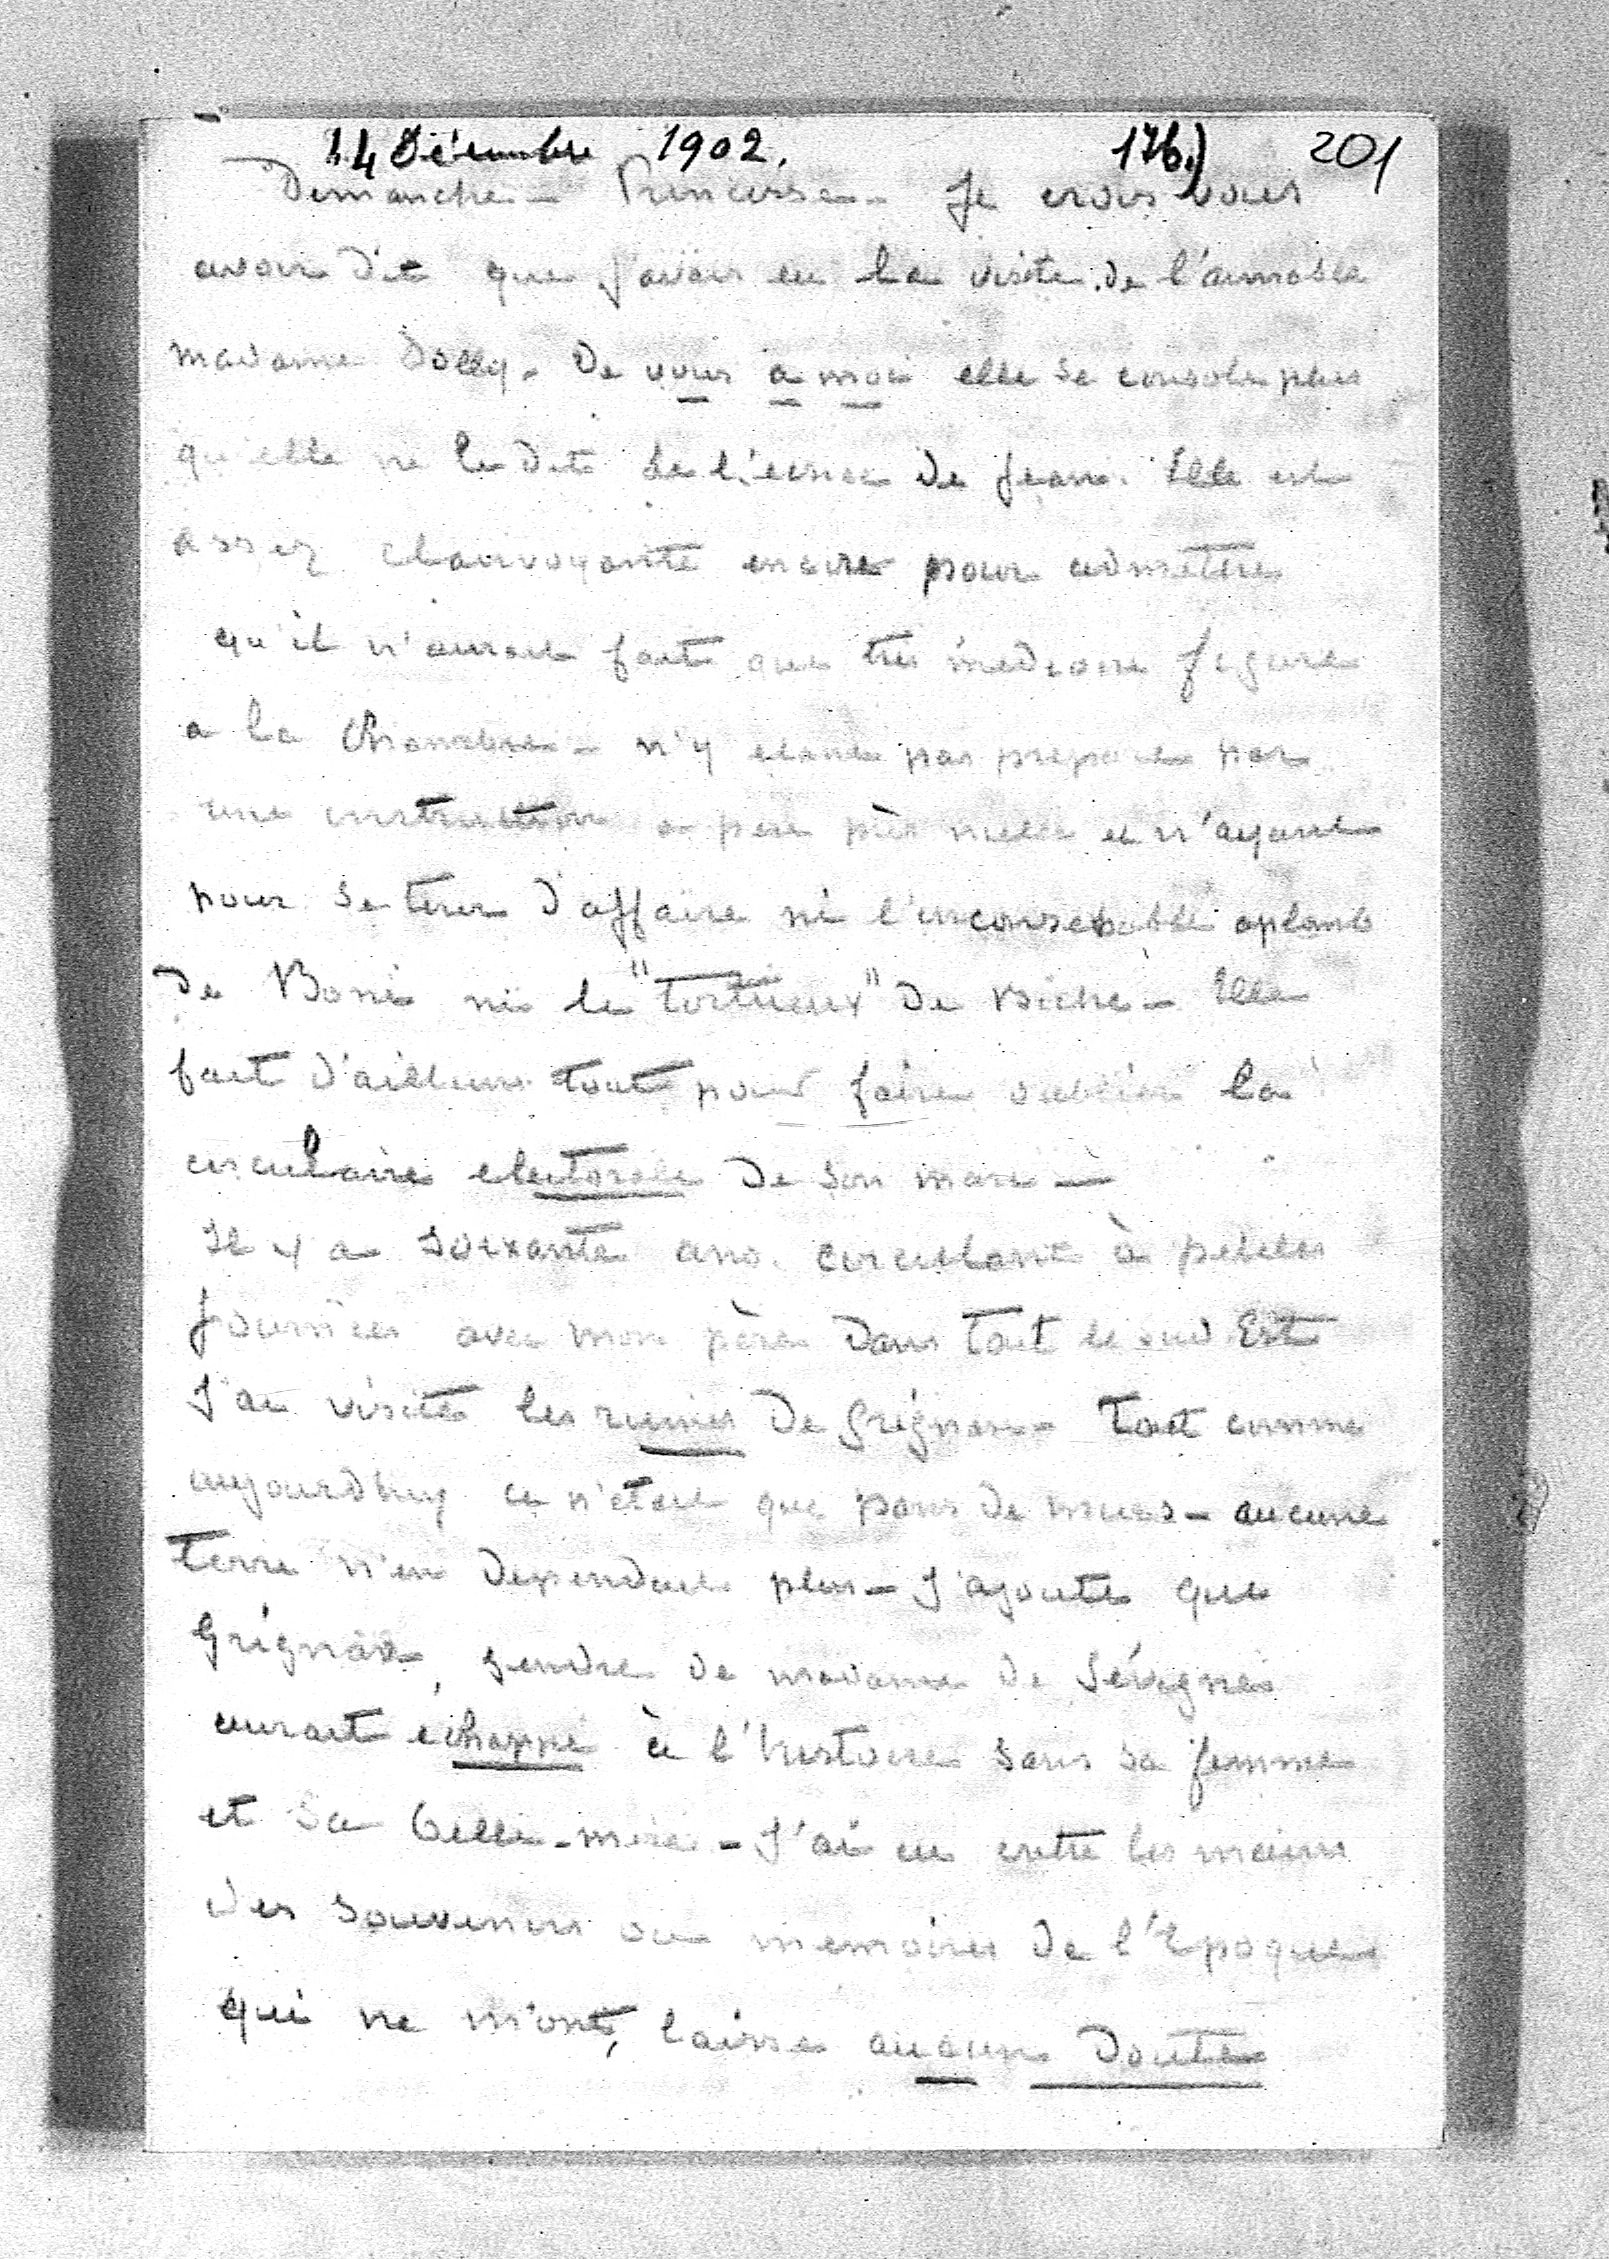 14 Décembre 1902. 176.) 201
Dimanche - Princesse - Je crois vous
avoir dit que j'avais eu la visite de l'aimable
madame Dolly - De vous à moi elle se console plus
qu'elle ne le dit de l'echec de Jean. Elle est
assez clairvoyante encore pour admettre
qu'il n'aurait fait que très mediocre figure
a la Chambre - n'y etant pas préparé par
une instruction a peu près nulle et n'ayant
pour se tirer d'affaire ni l'inconcevable aplomb
de Boni ni le "tortueux" de Biche - Elle
fait d'ailleurs tout pour faire oublier la
circulaire electorale de son mari -
Il y a soixante ans. circulant à petites
journées avec mon père dans tout le sud Est
J'ai visité les ruines de Grignan - Tout comme
aujourdhuy ce n'étoit que pans de murs - aucune
terre n'en dependait plus - J'ajoute que
Grignan, gendre de madame de Sévigné
aurait echappé à l'histoire sans sa femme
et sa belle-mère - J'ai eu entre les mains
des souvenirs ou memoires de l'Epoque
qui ne m'ont, laissé aucun doute